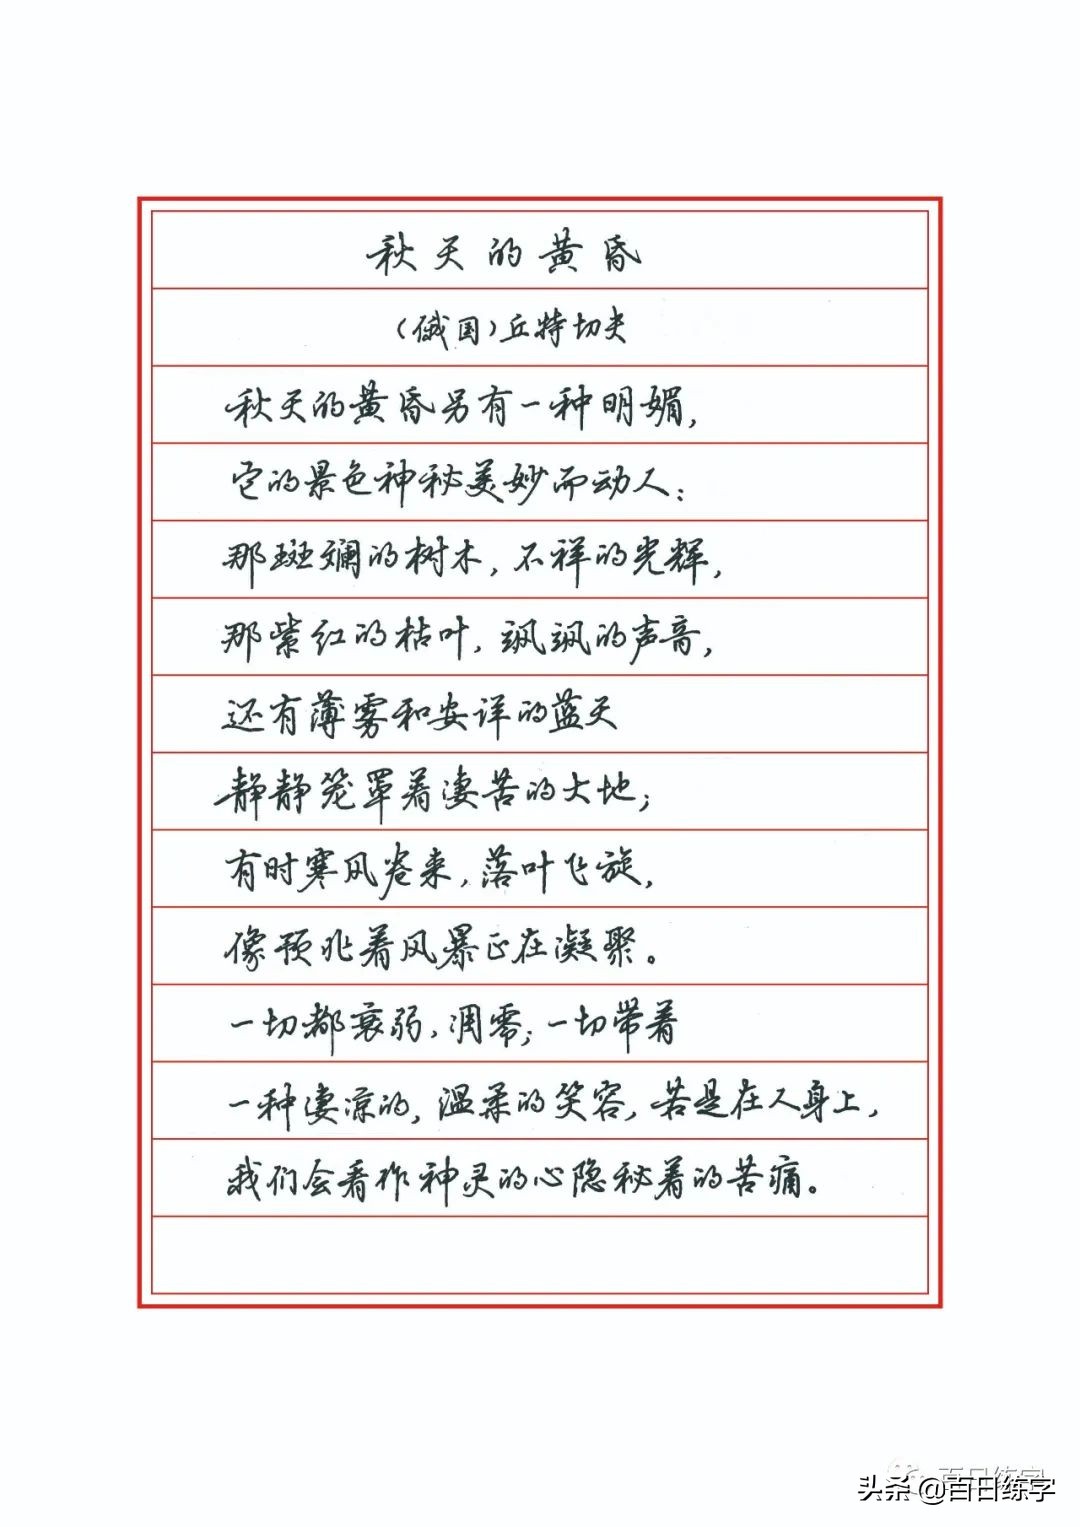 秋天的黄昏
(俄国)丘特切夫
秋天的黄昏另有一种明媚,
它的景色神秘美妙而动人:
那斑斓的树木,不祥的光辉,
那紫红的枯叶,飒飒的声音,
还有薄雾和安详的蓝天
静静笼罩着凄苦的大地;
有时寒风卷来,落叶飞旋,
像预兆着风暴正在凝聚。
一切都衰弱,凋零;一切带着
一种凄凉的,温柔的笑容,若是在人身上,
我们会看作神灵的心隐秘着的苦痛。
百日练字
头条@百日练字